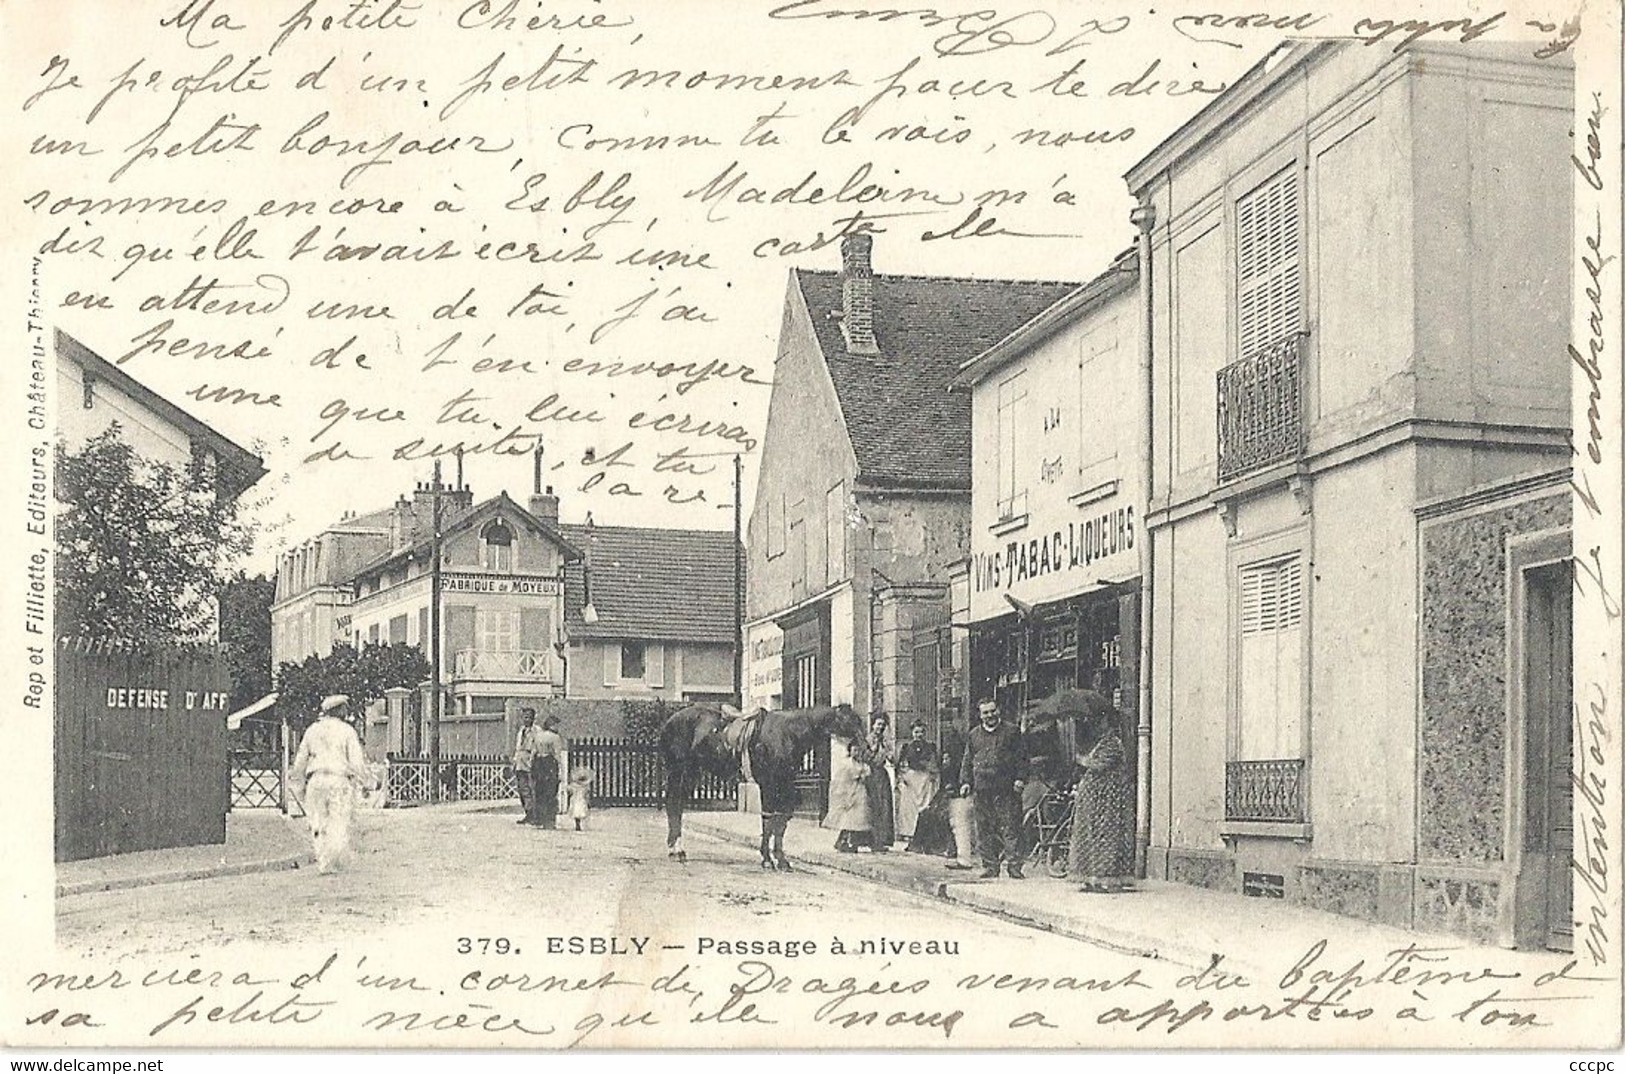 Ma petite Chérie,
Je profite d'un petit moment pour te dire
un petit bonjour, comme tu le vois, nous
sommes encore à Esbly, Madeleine m'a
dit qu'elle t'avait écrit une carte elle
en attend une de toi, j'ai
pensé de t'en envoyer
une que tu lui écriras
de suite, et tu
la re-
merciera d'un cornet de Dragées venant du baptême d
sa petite nièce qu'elle nous a apportés à ton
intention. Je t'embrasse bien
ta petite mère
Rep et Filliette, Editeurs, Château-Thierry
DEFENSE D'AFF
FABRIQUE DE MOYEUX
A LA
CIVETTE
VINS-TABAC-LIQUEURS
379. ESBLY — Passage à niveau
cccpc